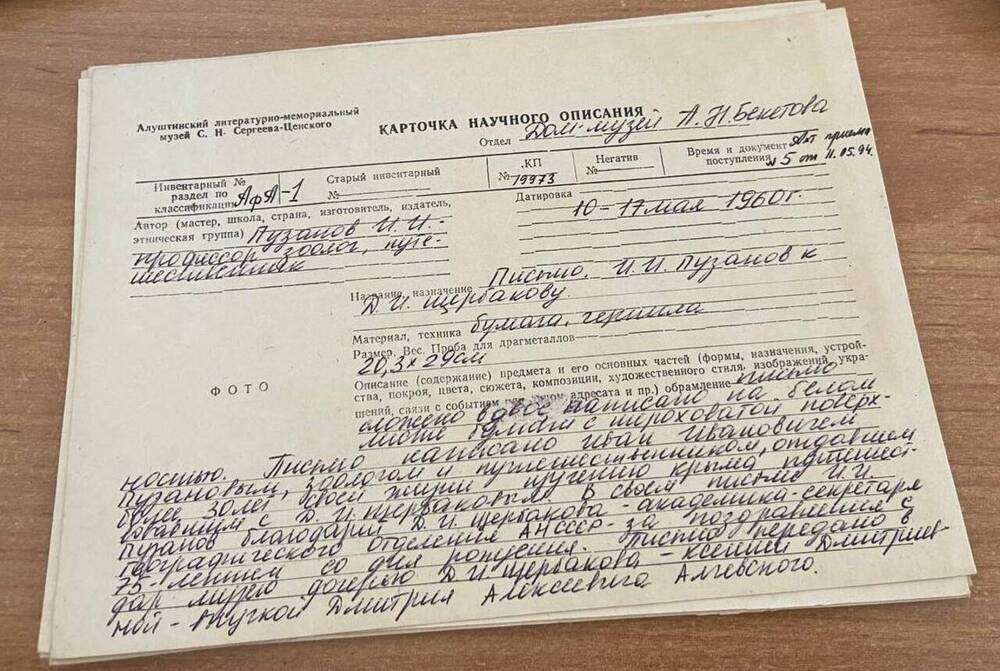 Алуштинский литературно-мемориальный
музей С. Н. Сергеева-Ценского
КАРТОЧКА НАУЧНОГО ОПИСАНИЯ
Отдел Дом-музей А.Н.Бекетова
Инвентарный №
раздел по
классификации АфА-1
Старый инвентарный
№
КП
№ 19973
Негатив
№
Время и документ Акт приема
поступления №5 от 11.05.94.
Автор (мастер, школа, страна, изготовитель, издатель,
этническая группа) Пузанов И.И. -
профессор зоолог, путе-
шественник
Датировка
10-17 мая 1960г.
Название, назначение Письмо. И.И. Пузанов к
Д.И. Щербакову.
Материал, техника бумага, чернила
Размер. Вес. Проба для драгметаллов
20,3×29см
ФОТО
Описание (содержание) предмета и его основных частей (формы, назначения, устрой-
ства, покроя, цвета, сюжета, композиции, художественного стиля, изображений, укра-
шений, связи с событием адресата и пр.) обрамление письмо
сложено вдвое написано на белом
листе бумаги с шероховатой поверх-
ностью. Письмо написано Иван Ивановичем
Пузановым, зоологом и путешественником, отдавшем
более 30лет своей жизни изучению Крыма путешест-
вовавшим с Д.И.Щербаковым. В своем письме И.И.
Пузанов благодарит Д.И.Щербакова-академика-секретаря
географического отделения АНСССР-за поздравления с
75-летием со дня рождения. Письмо передано в
дар музею дочерью Д.И.Щербакова-Ксенией Дмитриев-
ной - внучкой Дмитрия Алексеевича Алчевского.